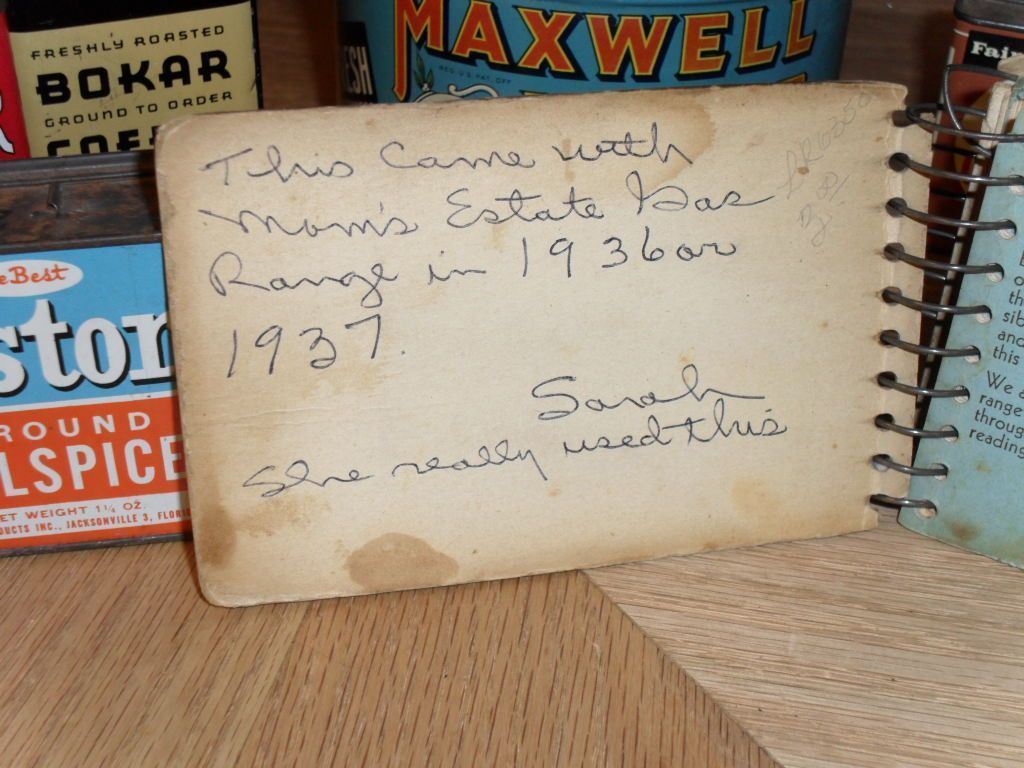 FRESHLY ROASTED
BOKAR
GROUND TO ORDER
MAXWELL
REG. U.S. PAT. OFF
ESH
Fair
This Came with
Mom's Estate Gas
Range in 1936 or
1937.
Sarah
She really used this
e Best
ston
ROUND
LSPICE
ET WEIGHT 1¼ OZ.
UCTS INC., JACKSONVILLE 3, FLORI
th
sib
and
this
We a
range
throug
reading